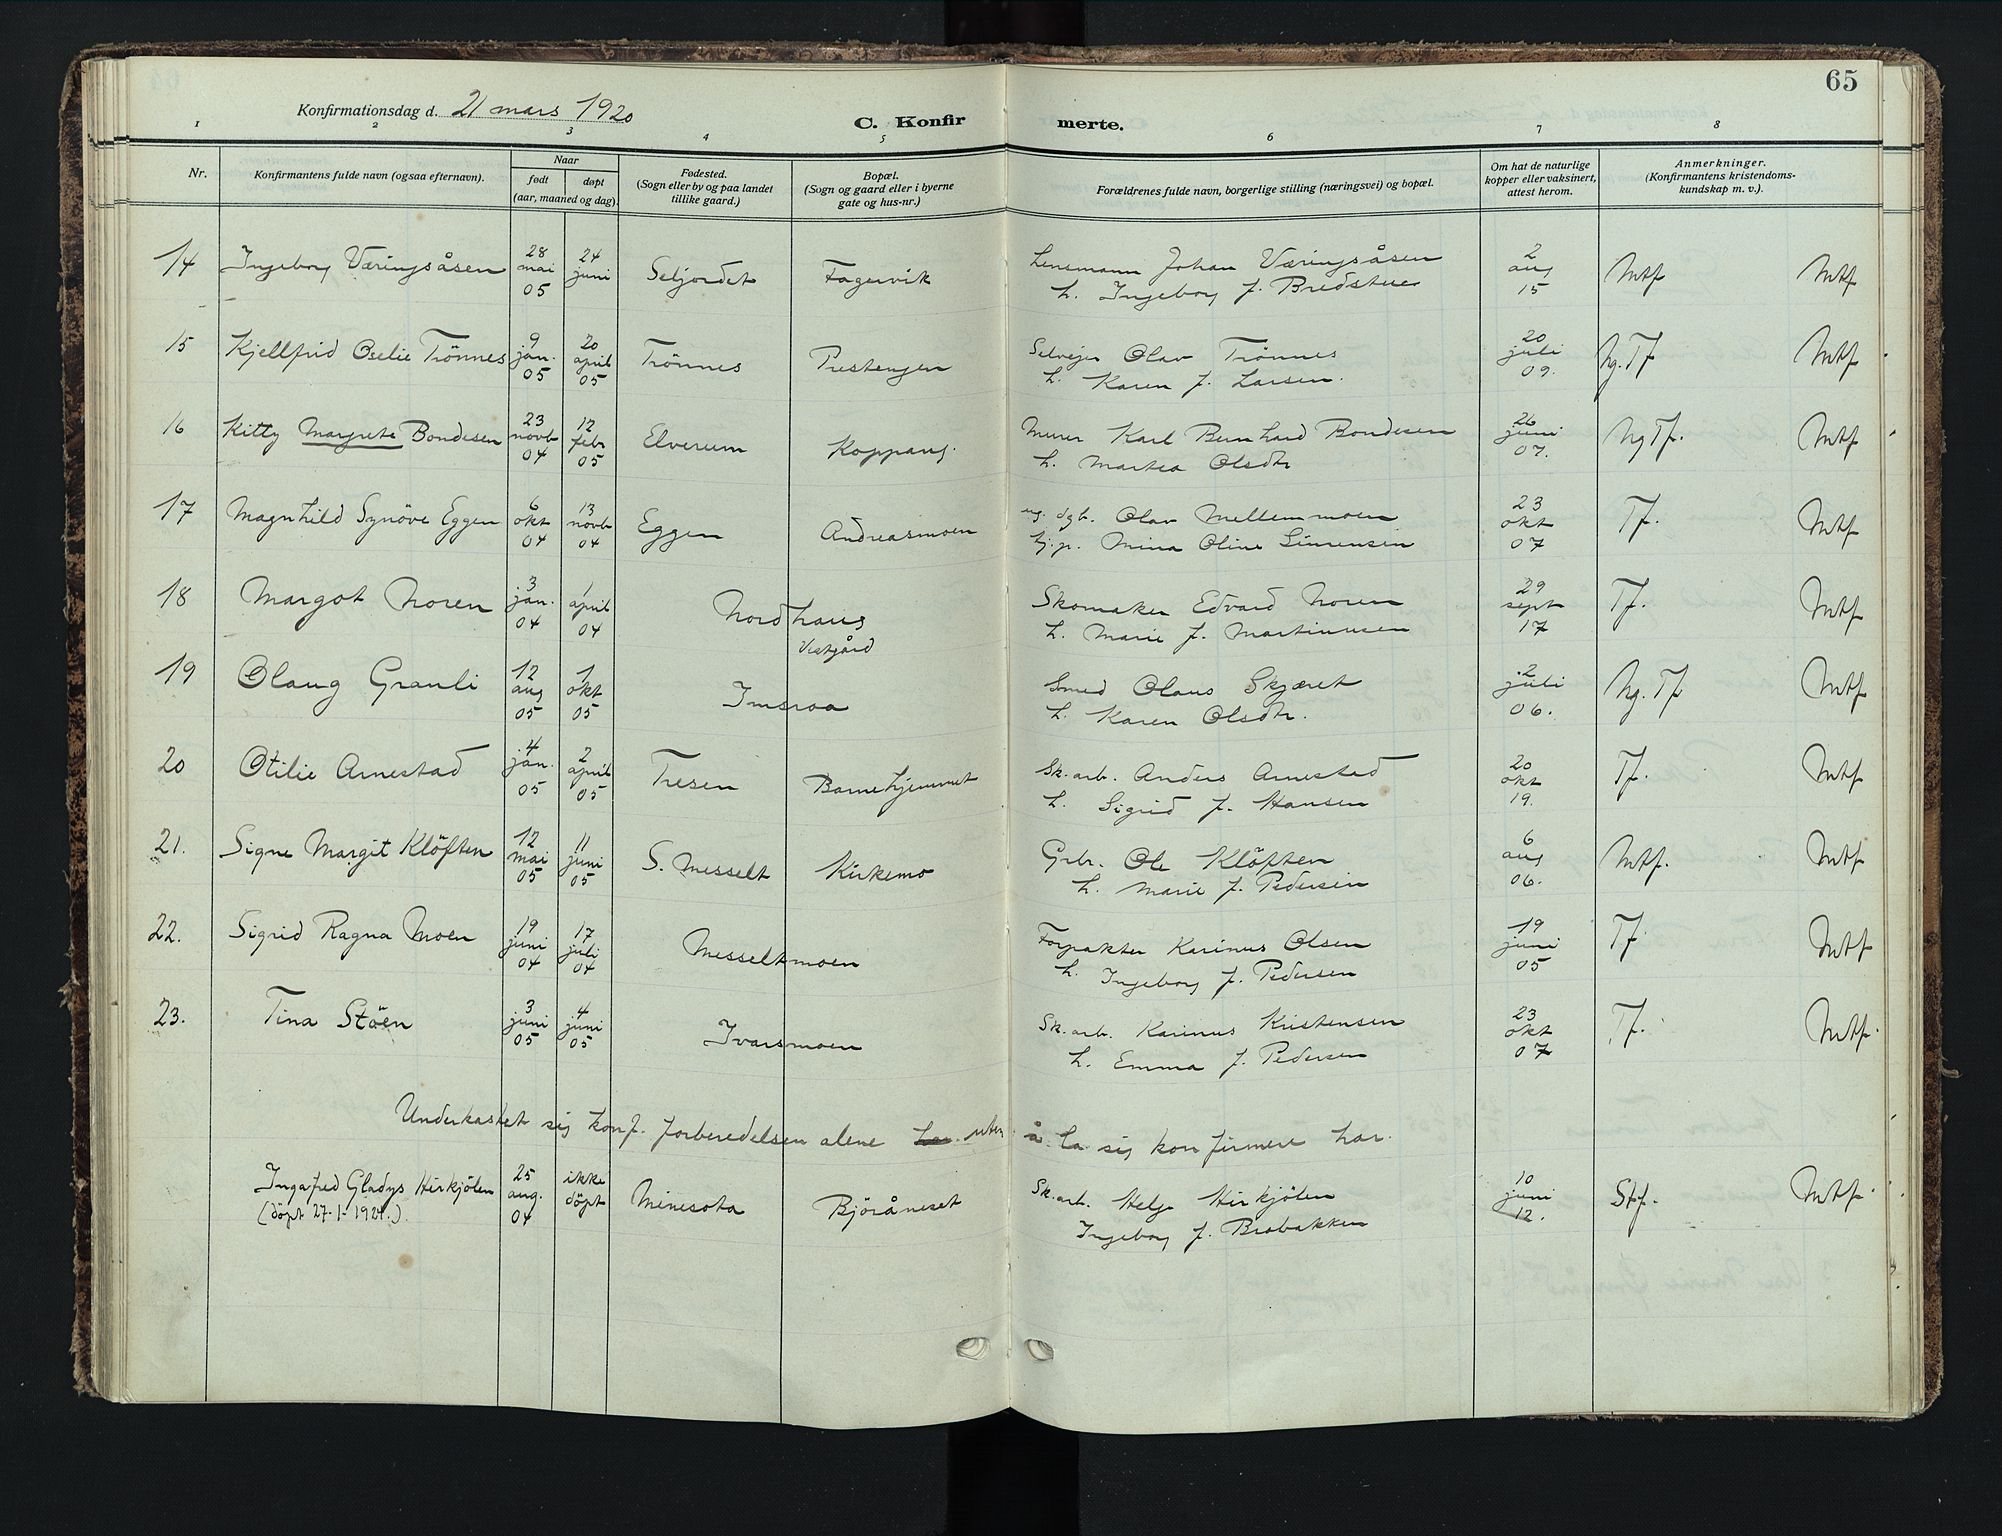 65
Konfirmationsdag d. 21 mars 1920
C. Konfirmerte.
1 2 3 4 5 6 7 8
Nr.
Konfirmantens fulde navn (ogsaa efternavn).
Naar
født
døpt
(aar, maaned og dag).
Fødested.
(Sogn eller by og paa landet
tillike gaard.)
Bopæl.
(Sogn og gaard eller i byerne
gate og hus-nr.)
Forældrenes fulde navn, borgerlige stilling (næringsvei) og bopæl.
Om hat de naturlige
kopper eller vaksinert,
attest herom.
Anmerkninger.
(Konfirmantens kristendoms-
kundskap m. v.).
14 Ingeborg Væringsåsen 28 mai 05 24 juni Seljordet Fagervik Lensmann Johan Væringsåsen 2 aug 15 Mtf Mtf
h. Ingeborg f. Bredstuen
15 Kjellfrid Oselie Trönnes 9 jan. 05 20 april 05 Trönnes Prestengen Selvejer Olav Trönnes 20 juli 09. Ng. Tf Mtf
h. Karen f. Larsen.
16 Kitty Margrete Bondesen 23 novb 04 12 febr 05 Elverum Koppang. Murer Karl Bernhard Bondesen 26 juni 07. Ng Tf. Mtf
h. Martea Olsdtr
17 Magnhild Synöve Eggen 6 okt 04 13 novb 04 Eggen Andreasmoen ug. dgb. Olav Mellemmoen 23 okt 07 Tf. Mtf
tj.p. Mina Oline Simensen
18 Margot Noren 3 jan. 04 1 april 04 Nordhaug Skomaker Edvard Noren 29 sept 17 Tf. Mtf
Vestgård h. Marie f. Martinusen
19 Olaug Granli 12 aug 05 1 okt 05 Imsroa Smed Olaus Skjæret 2 juli 06. Ng. Tf Mtf
h. Karen Olsdtr.
20 Otilie Arnestad 4 jan. 05 2 april 05 Tresen Barnehjemmet Sk. arb. Anders Arnestad 20 okt 19. Tf. Mtf
h. Sigrid f. Hansen
21. Signe Margit Klöften 12 mai 05 11 juni 05 S. Messelt Kirkemo Grbr. Ole Klöften 6 aug 06. Mtf. Mtf
h. Marie f. Pedersen
22. Sigrid Ragna Moen 19 juni 04 17 juli 04 Messeltmoen Forpakter Karinus Olsen 19 juni 05 Tf Mtf
h. Ingeborg f. Pedersen
23. Tina Stöen 3 juni 05 4 juni 05 Ivarsmoen Sk. arb. Karinus Kristensen 23 okt 07 Tf. Mtf.
h. Emma f. Pedersen
Underkastet sig konf. forberedelsen alene har uten å la sig konfirmere har.
Ingafred Gladys Hirkjölen 25 aug. 04 ikke döpt Minesota Björåneset Sk. arb. Helge Hirkjölen 10 juni 12. Stf. Mtf
(döpt 27-1-1921.) Ingeborg f. Brobakken